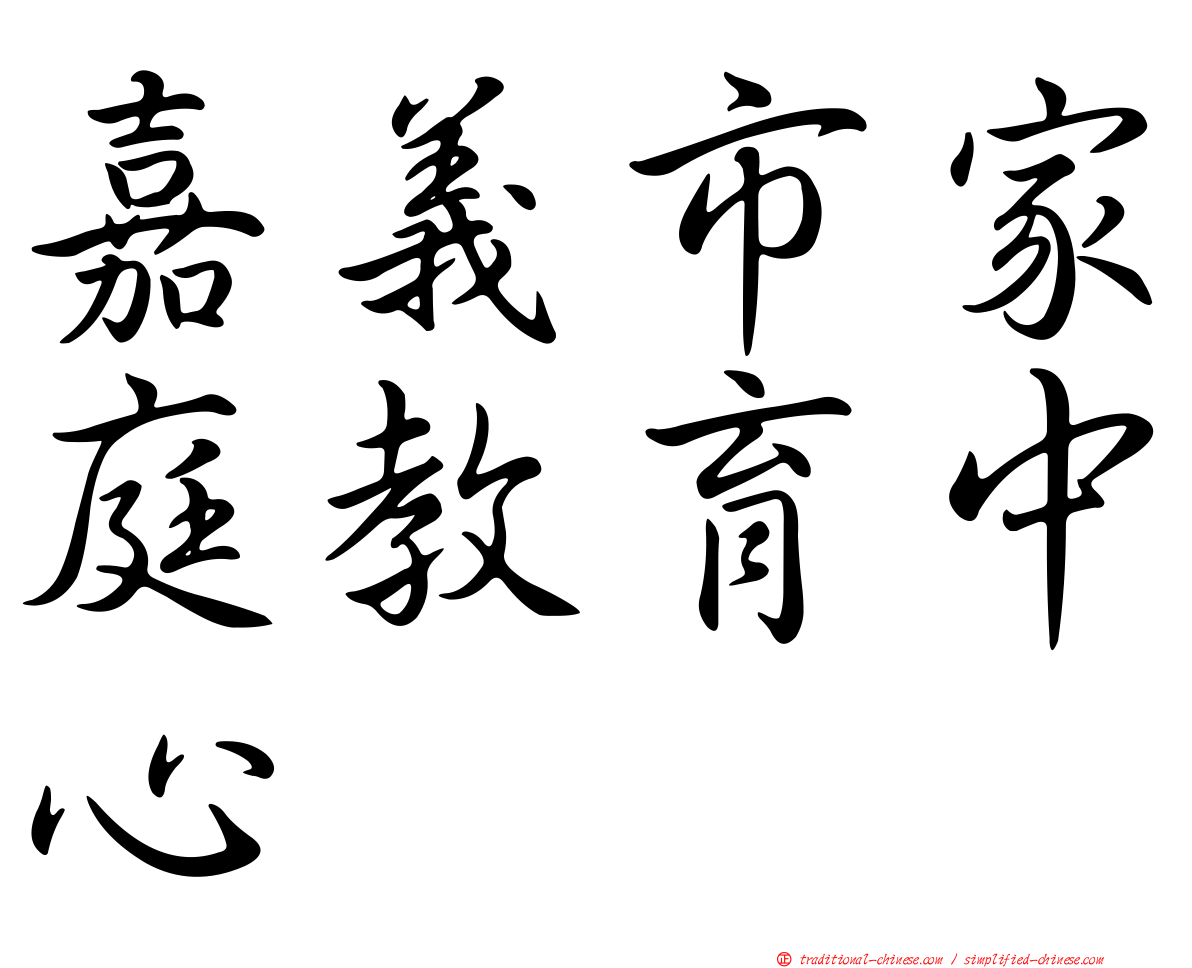 嘉義市家
庭教育中
心
㊣ traditional-chinese.com / simplified-chinese.com